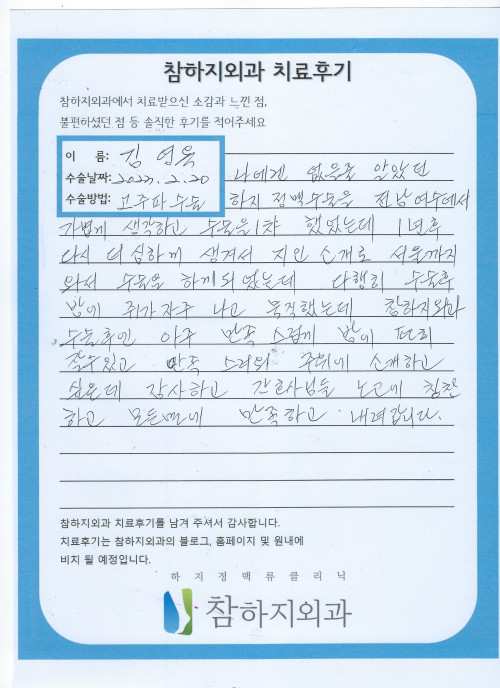 참하지외과 치료후기
참하지외과에서 치료받으신 소감과 느낀 점,
불편하셨던 점 등 솔직한 후기를 적어주세요
이 름: 김영옥
수술날짜: 2023. 2. 20
수술방법: 고주파 수술
나에겐 없을줄 알았던
하지 정맥수술을 전남 여수에서
가볍게 생각하고 수술을 1차 했었는데 1년후
다시 더 심하께 생겨서 지인 소개로 서울까지
와서 수술을 하게 되었는데 다행히 수술후
밤에 쥐가 자주 나고 묵직했는데 참하지외과
수술후인 아주 만족스럽게 밤에 편히
잘수있고 만족 스러워 주위에 소개하고
싶은데 감사하고 간호사님들 노고에 칭찬
하고 모든면에 만족하고 내려갑니다.
참하지외과 치료후기를 남겨 주셔서 감사합니다.
치료후기는 참하지외과의 블로그, 홈페이지 및 원내에
비치 될 예정입니다.
하지정맥류클리닉
참하지외과